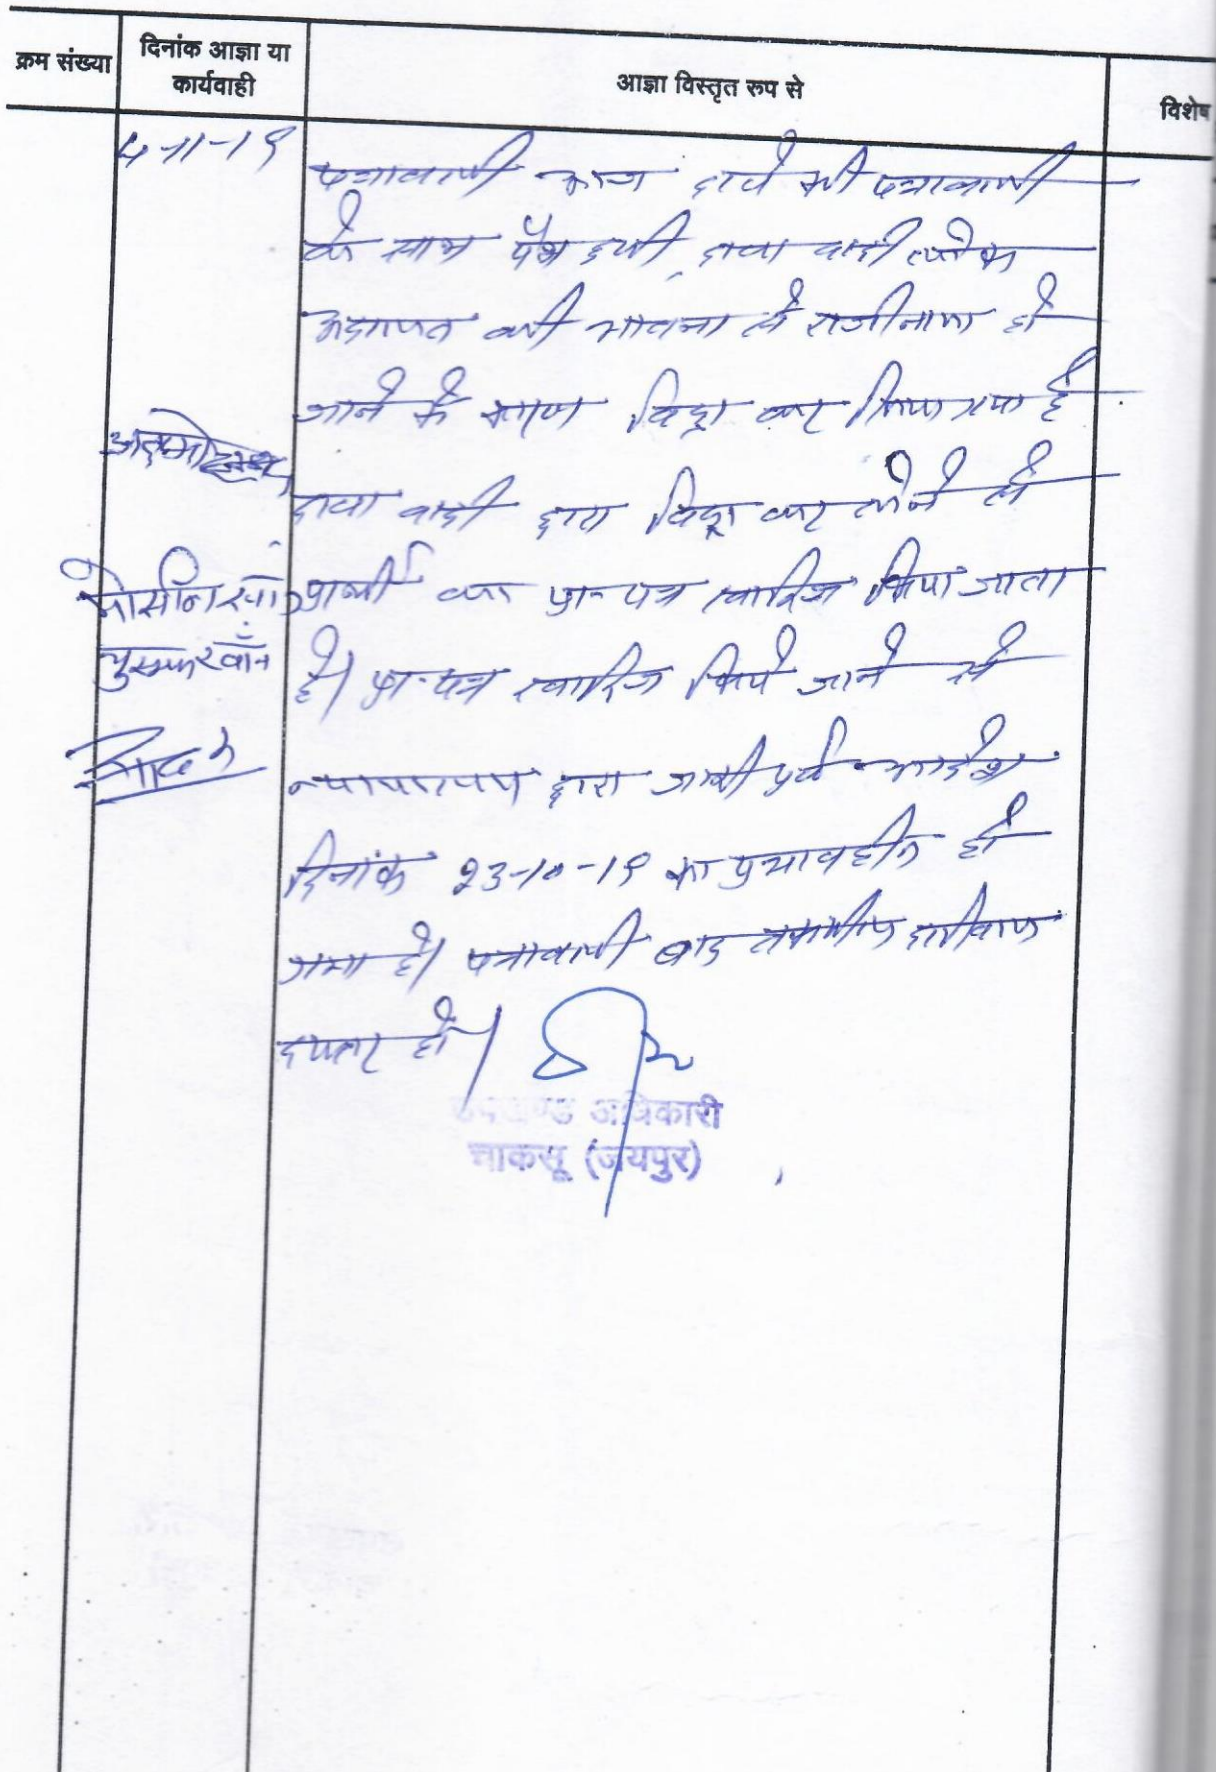 क्रम संख्या
दिनांक आज्ञा या
कार्यवाही
आज्ञा विस्तृत रुप से
विशेष
4-11-19
पत्रावली आज दावे की पत्रावली
के साथ पेश हुयी, दावा वादी लोक
अदालत की भावना से राजीनामा हो
जाने के कारण विड्रा कर लिया गया है
दावा वादी द्वारा विड्रा कर लेने से
प्रार्थी का प्रा-पत्र खारिज किया जाता
है। प्रा-पत्र खारिज किये जाने से
न्यायालय द्वारा जारी पूर्व आदेश
दिनांक 23-10-19 का प्रभावहीन हो
गया है। पत्रावली बाद तकमील दाखिल
दफ्तर हो।
मोसीन खाँ
युसुफ खाँन
उपखण्ड अधिकारी
चाकसू (जयपुर)